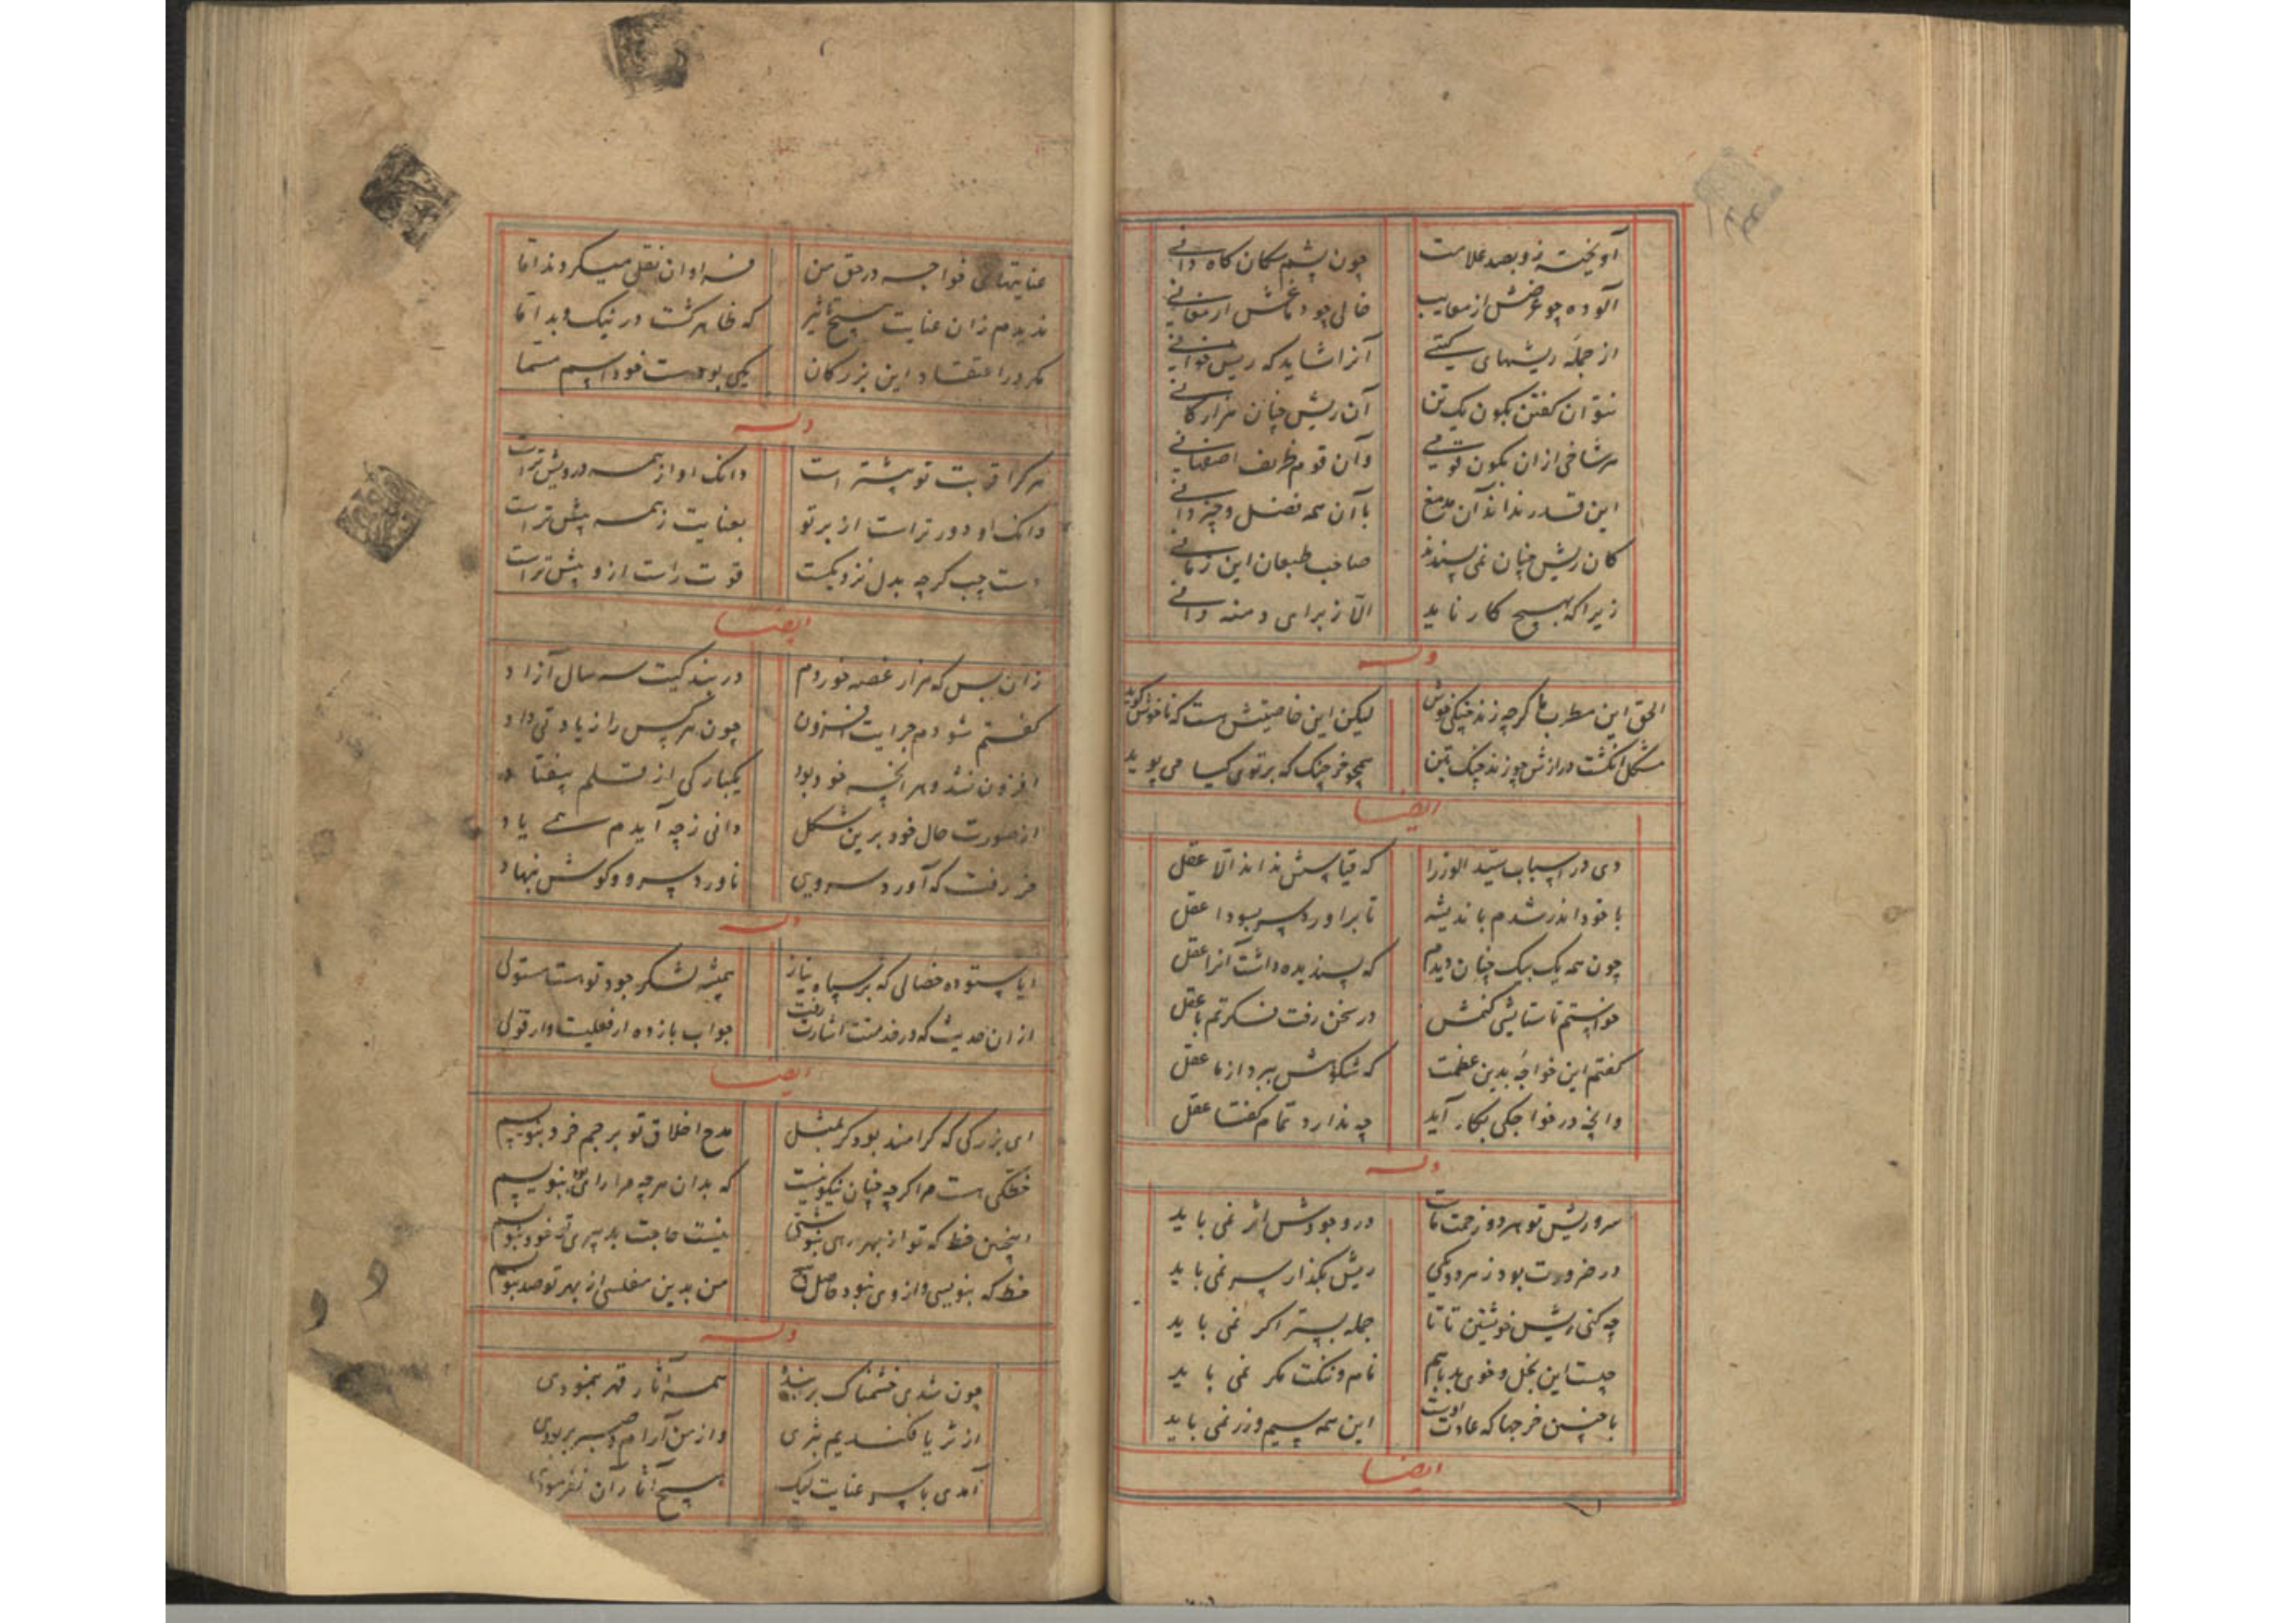 آویخته زو بصد علامت چون پشم سکان کاه دانی
آلوده چو عرضش از معایب خالی چو دماغش از معانی
از جمله ریشهای کیتی آنرا شاید که ریش خوانی
نتوان کفتن بکون یک تن آن ریش چنان هزار کانی
هر شاخی ازان بکون قومی وآن قوم ظریف اصفهانی
این قدر نداند آن مدمغ باآن همه فضل و چیز دانی
کان ریش چنان نمی پسندند صاحب طبعان این زمانی
زیرا که بهیچ کار ناید الا ز برای دمنه دانی
وله
الحق این مطرب ما کرچه زند چنکی خوش لیکن این خاصیتش هست که ناخوش کوید
شکل انکشت درازش چو زند چنک بتن همچو خرچنک که بر توی کیا می پوید
ایضا
دی در اسباب سید الوزرا که قیاسش نداند الا عقل
با خود اندر شدم باندیشه تا براورد سر بسودا عقل
چون همه یک بیک چنان دیدم که پسندیده داشت آنرا عقل
خواستم تا ستایشی کنمش در سخن رفت فکرتم با عقل
کفتم این خواجه بدین عظمت که شکوهش ببرد از ما عقل
وانچه در خواجکی بکار آید چه ندارد تمام کفتا عقل
وله
سر و ریش تو هر دو زحمت ماست در وجودش اثر نمی باید
در ضرورت بود ز هر دو یکی ریش بکذار سر نمی باید
چه کنی ریش خویشتن تا تا جمله بستر اکر نمی باید
چیست این بخل و خوی بد باهم نام و ننکت مکر نمی باید
با چنین خرجها که عادت اوست این همه سیم و زر نمی باید
ایضا
عنایتهای خواجه در حق من فراوان نقل میکردند اما
ندیدم زان عنایت هیچ تاثیر که ظاهر کشت در نیک و بد اما
مکر در اعتقاد این بزرکان یکی بودست خود اسم مسما
وله
هر کرا قربت تو بیشتر است دانک او از همه درویش تراست
وانک او دورتر است از بر تو بعنایت ز همه پیش تراست
دست چپ کرچه بدل نزدیکست قوت راست ازو بیش تراست
ایضا
زان بس که هزار غصه خوردم در بندکیت سه سال آزاد
کفتم شودم جرایت افزون چون هر کس را زیادتی داد
افزون نشد و هر انچه خود بود یکبارکی از قلم بیفتاد
از صورت حال خود برین شکل دانی ز چه آیدم همی یاد
خر رفت که آورد سرویی ناورد سرو و کوش بنهاد
وله
ایا ستوده خصالی که بر سپاه نیاز همیشه لشکر جود تو هست مستولی
ازان حدیث که در خدمتت اشارت رفت جواب بازده ار فعلیست وار قولی
ایضا
ای بزرکی که کرامند بود کر بمثل مدح اخلاق تو بر جرم خرد بنویسیم
خطکی هست مرا کرچه چنان نیکو نیست که بدان هرچه مرا رای بود بنویسیم
اینچنین خط که تو از بهر رهی بنوشتی نیست حاجت بدبیری تو خود بنویسم
خط که بنویسی و ازوی نبود حاصل هیچ من بدین مفلسی از بهر تو صد بنویسم
وله
چون شدی خشمناک بر بنده همه آثار قهر بنمودی
از ثریا فکندیم بثری واز من آرام و صبر بربودی
آمدی با سر عنایت لیک هیچ آثار آن نفرمودی